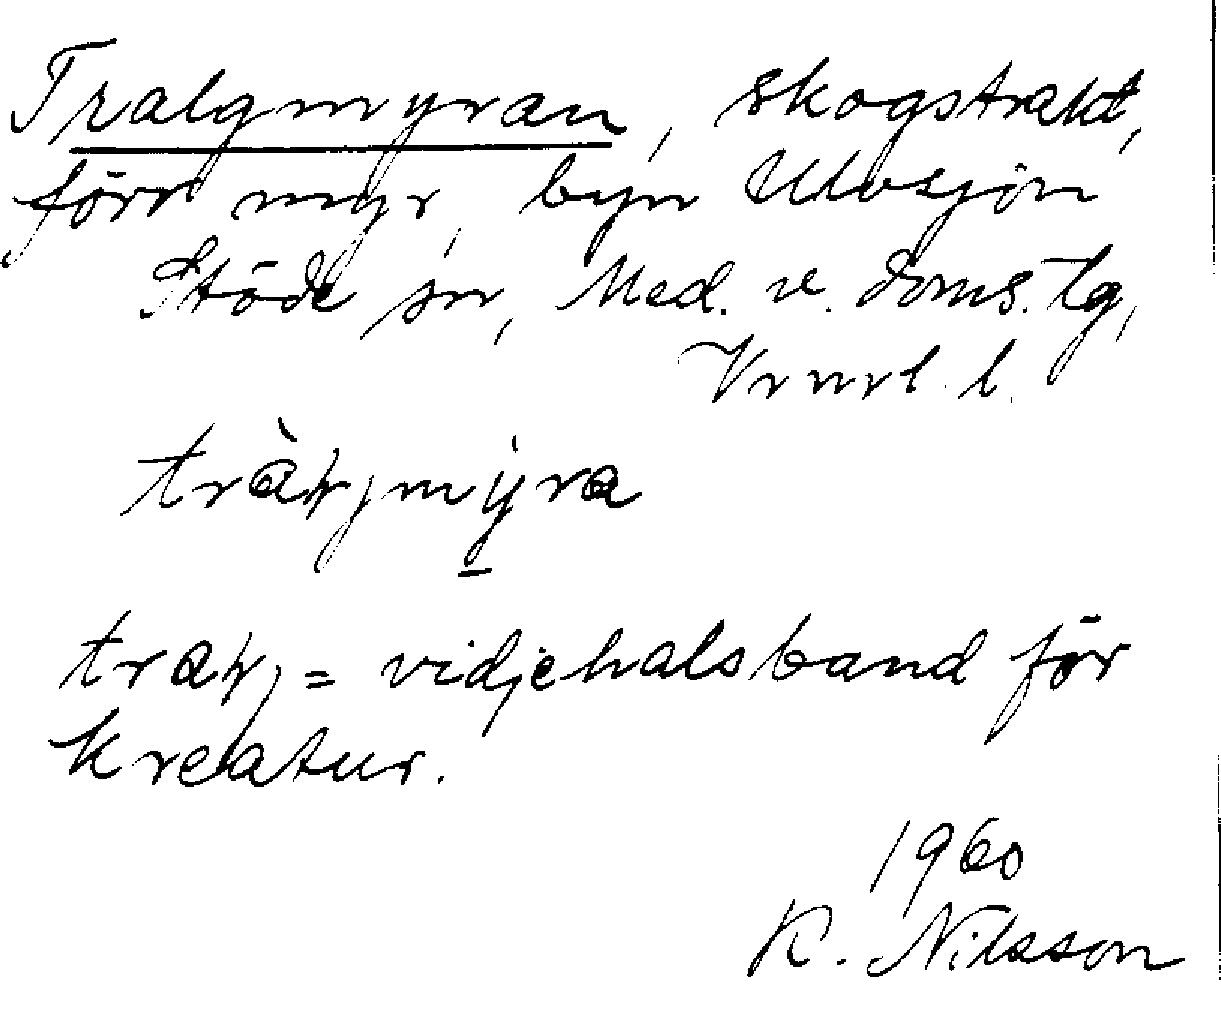 Tralgmyran, skogstrakt,
förr myr, byn Ulvsjön
Stöde sn, Med. v. doms. lg,
Vrnrl. l.
myra
= vidjehalsband för
kreatur.
1960
K. Nilsson